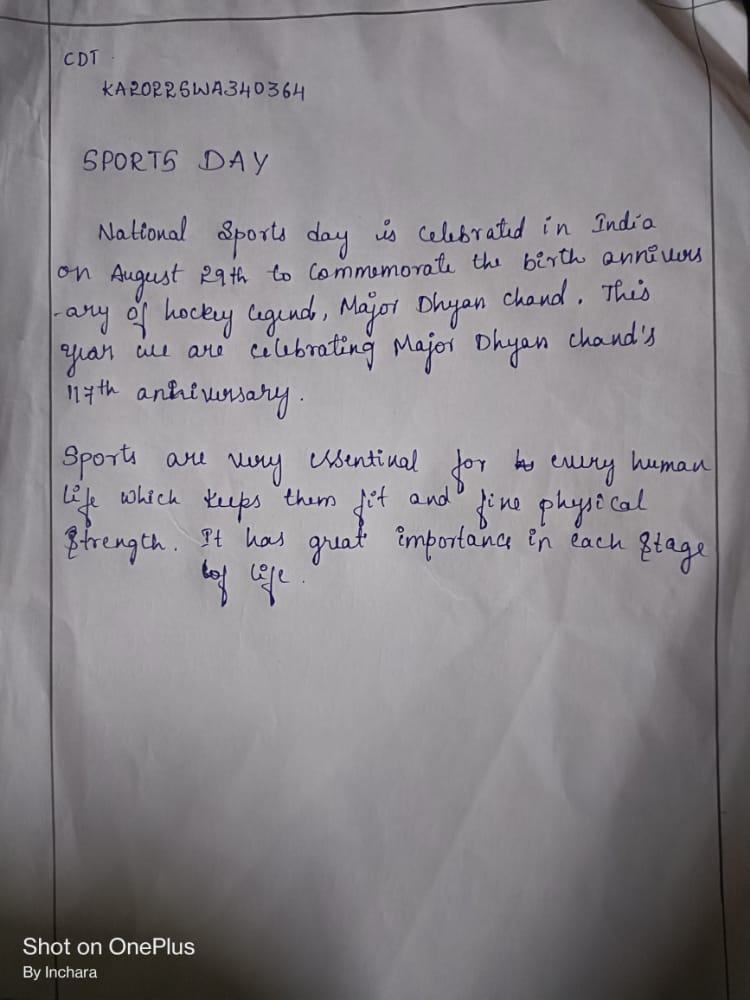 CDT
KA2022SWA340364
SPORTS DAY
National Sports day is celebrated in India
on August 29th to Commemorate the birth annivers
-ary of hockey legend, Major Dhyan chand. This
year we are celebrating Major Dhyan chand's
117th anniversary.
Sports are very essentinal for every human
life which keeps them fit and fine physical
strength. It has great importance in each stage
of life.
Shot on OnePlus
By Inchara